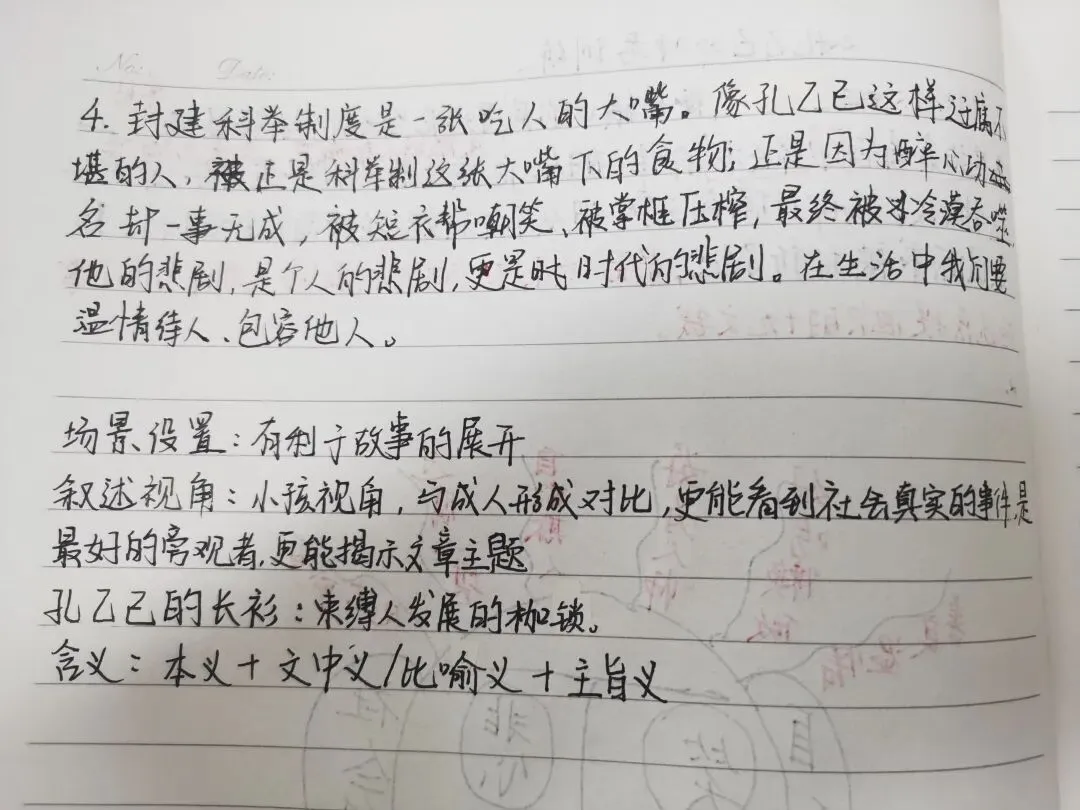 No:  Date:
4. 封建科举制度是一张吃人的大嘴。像孔乙己这样迂腐不
堪的人,正是科举制这张大嘴下的食物;正是因为醉心功
名却一事无成,被短衣帮嘲笑、被掌柜压榨,最终被冷漠吞噬
他的悲剧,是个人的悲剧,更是时代的悲剧。在生活中我们要
温情待人、包容他人。
场景设置:有利于故事的展开
叙述视角:小孩视角,与成人形成对比,更能看到社会真实的事件,是
最好的旁观者,更能揭示文章主题
孔乙己的长衫:束缚人发展的枷锁。
含义:本义+文中义/比喻义+主旨义